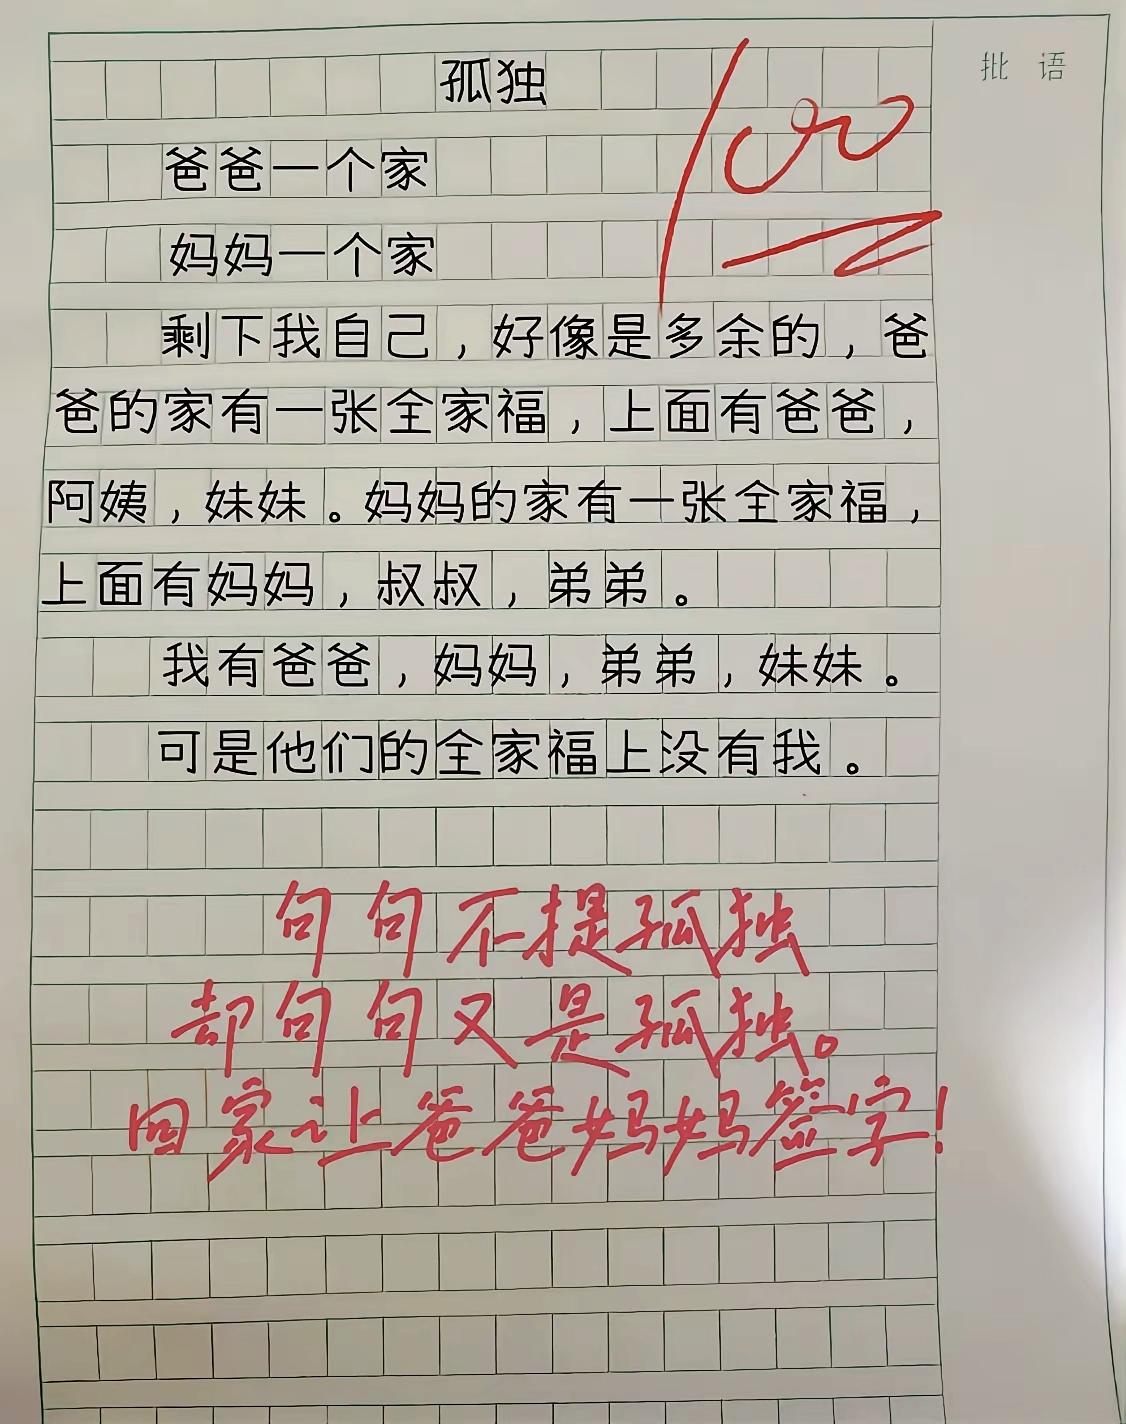 批 语
孤独
100
爸爸一个家
妈妈一个家
剩下我自己，好像是多余的，爸
爸的家有一张全家福，上面有爸爸，
阿姨，妹妹。妈妈的家有一张全家福，
上面有妈妈，叔叔，弟弟。
我有爸爸，妈妈，弟弟，妹妹。
可是他们的全家福上没有我。
句句不提孤独
却句句又是孤独。
回家让爸爸妈妈签字！